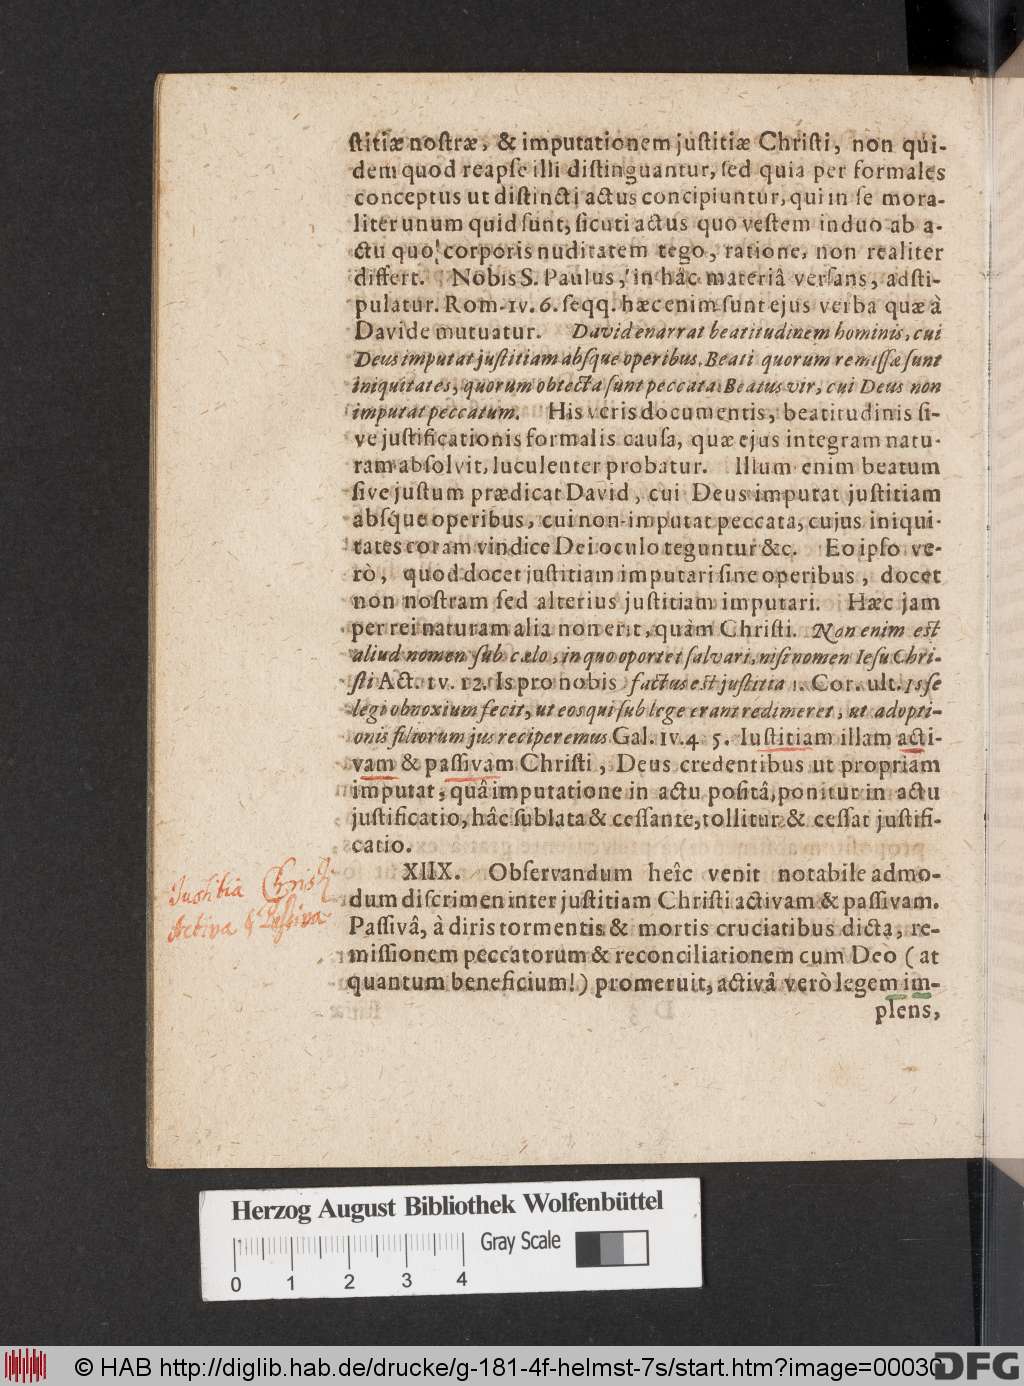 ſtitiæ noſtræ, & imputationem juſtitiæ Chriſti, non qui-
dem quod reapſe illi diſtinguantur, ſed quia per formales
conceptus ut diſtincti actus concipiuntur, qui in ſe mora-
liter unum quid ſunt, ſicuti actus quo veſtem induo ab a-
ctu quo corporis nuditatem tego, ratione, non realiter
differt. Nobis S. Paulus, in hâc materiâ verſans, adſti-
pulatur. Rom. IV. 6. ſeqq. hæc enim ſunt ejus verba quæ à
Davide mutuatur. David enarrat beatitudinem hominis, cui
Deus imputat juſtitiam abſque operibus. Beati quorum remiſſæ ſunt
iniquitates, quorum obtecta ſunt peccata. Beatus vir, cui Deus non
imputat peccatum. His veris documentis, beatitudinis ſi-
ve juſtificationis formalis cauſa, quæ ejus integram natu-
ram abſolvit, luculenter probatur. Illum enim beatum
ſive juſtum prædicat David, cui Deus imputat juſtitiam
abſque operibus, cui non imputat peccata, cujus iniqui-
tates coram vindice Dei oculo teguntur &c. Eo ipſo ve-
rò, quod docet juſtitiam imputari ſine operibus, docet
non noſtram ſed alterius juſtitiam imputari. Hæc jam
per rei naturam alia non erit, quàm Chriſti. Non enim est
aliud nomen ſub cælo, in quo oportet ſalvari, niſi nomen Ieſu Chri-
ſti Act. IV. 12. Is pro nobis factus est juſtitia 1. Cor. ult. Is ſe
legi obnoxium fecit, ut eos qui ſub lege erant redimeret, ut adopti-
onis filiorum jus reciperemus Gal. IV. 4 5. Iuſtitiam illam acti-
vam & paſſivam Chriſti, Deus credentibus ut propriam
imputat, quâ imputatione in actu poſitâ, ponitur in actu
juſtificatio, hâc ſublata & ceſſante, tollitur & ceſſat juſtifi-
catio.
XIIX. Obſervandum heîc venit notabile admo-
dum diſcrimen inter juſtitiam Chriſti activam & paſſivam.
Paſſivâ, à diris tormentis & mortis cruciatibus dicta, re-
miſſionem peccatorum & reconciliationem cum Deo (at
quantum beneficium!) promeruit, activâ verò legem im-
plens,
Iustitia Christi
Activa & Passiva
Herzog August Bibliothek Wolfenbüttel
Gray Scale
0 1 2 3 4
© HAB http://diglib.hab.de/drucke/g-181-4f-helmst-7s/start.htm?image=00030
DFG